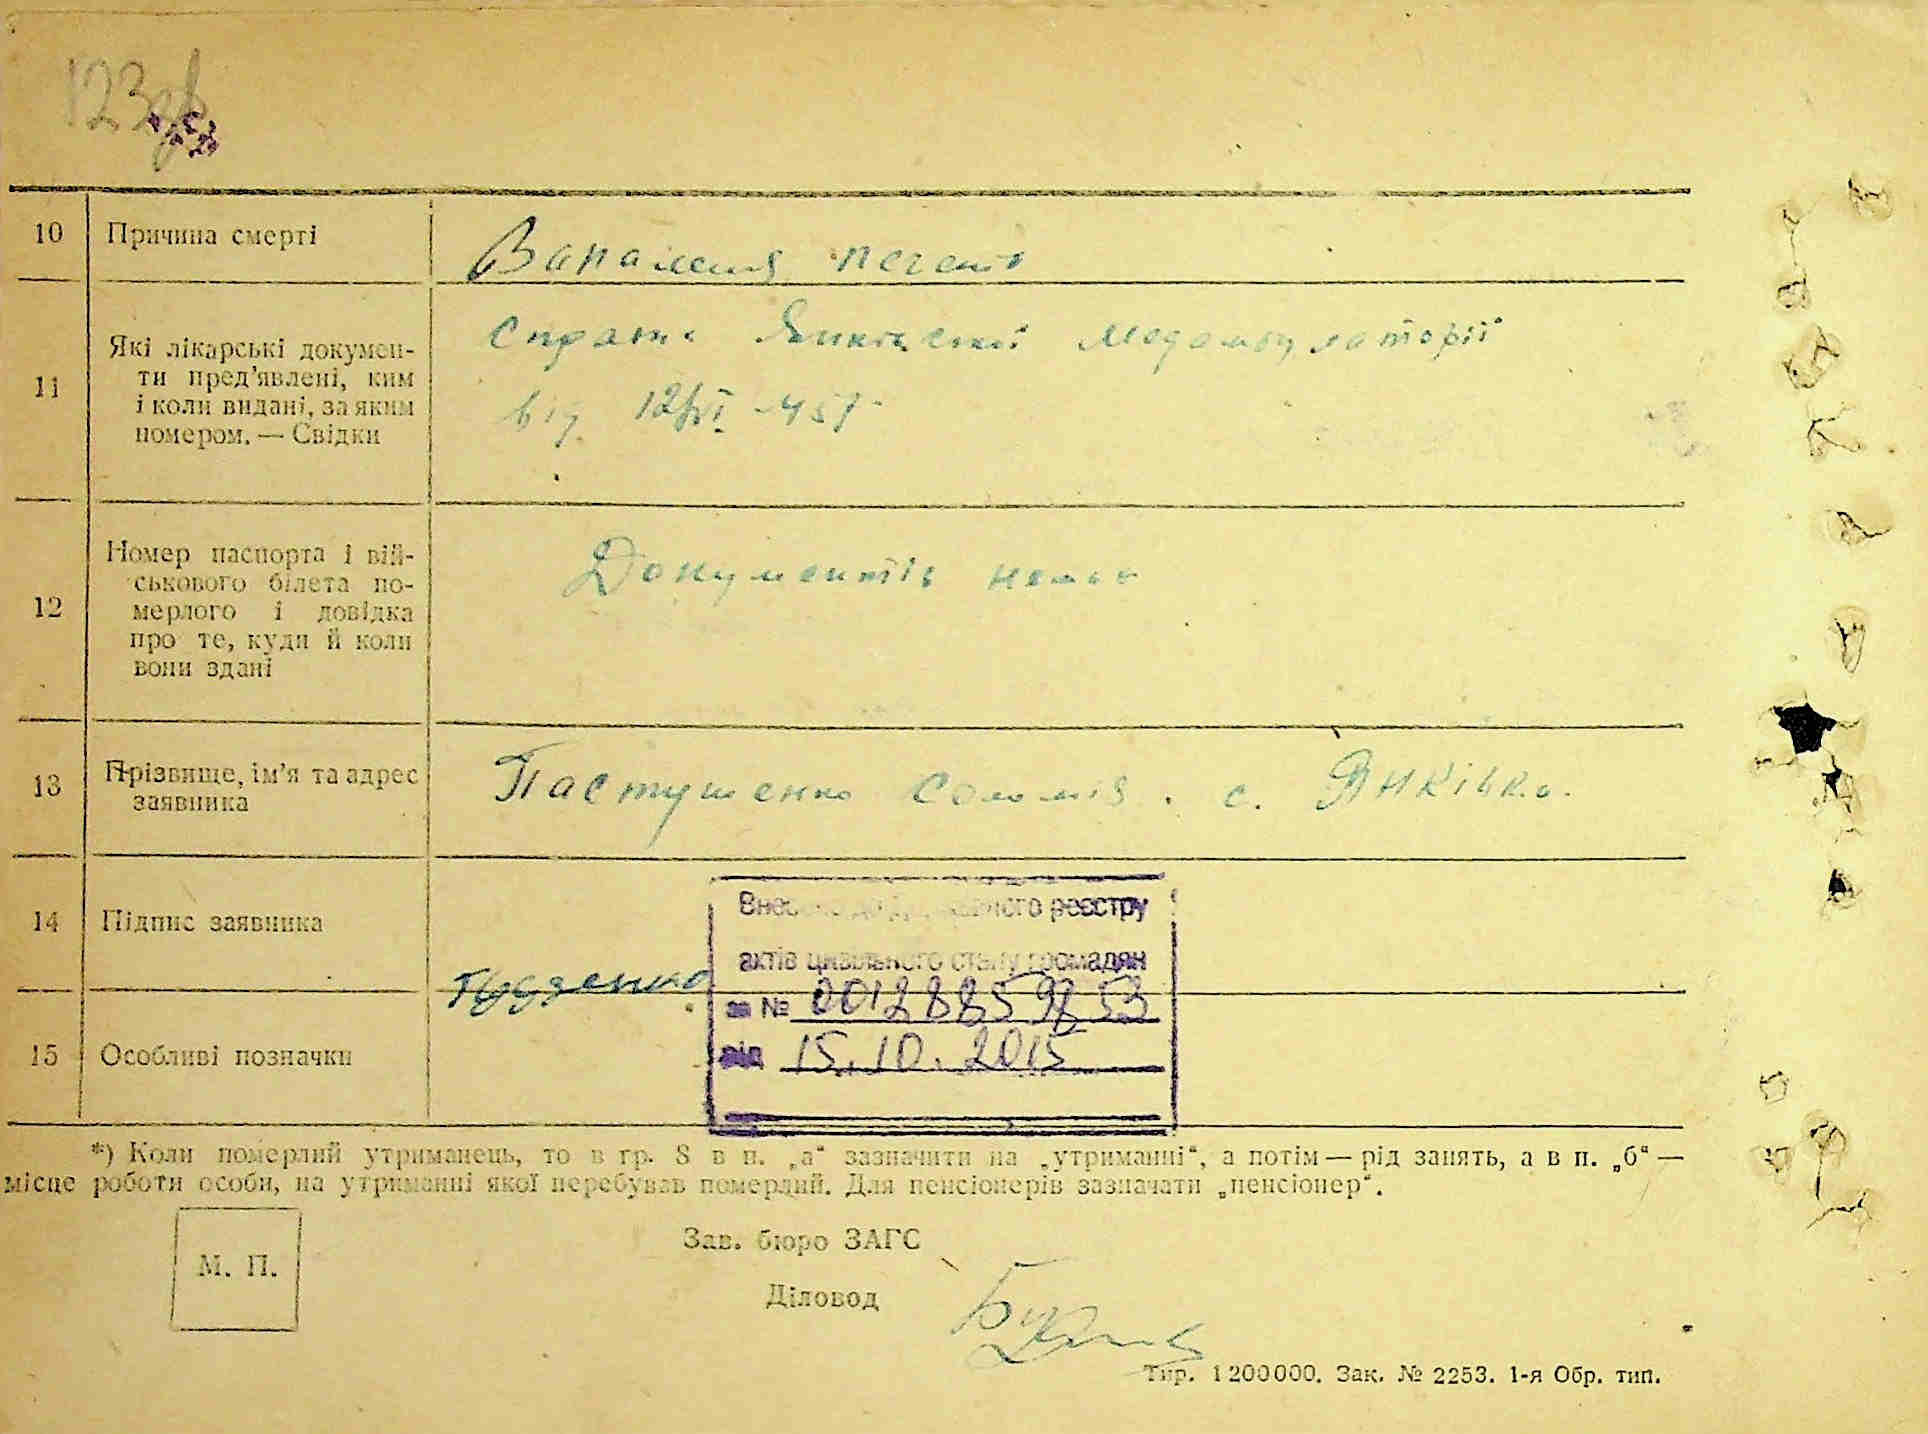 123
10 Причина смерті
Запалення печені
11 Які лікарські докумен-
ти пред’явлені, ким
і коли видані, за яким
номером. — Свідки
амбулаторії
від 12/VI
12 Номер паспорта і вій-
ськового білета по-
мерлого і довідка
про те, куди й коли
вони здані
Документів нема
13 Прізвище, ім’я та адрес
заявника
Пастушенко Соломія. с. Янківка.
14 Підпис заявника
15 Особливі позначки
Внесено до Державного реєстру
актів цивільного стану громадян
за №
від 15.10.2015
*) Коли померлий утриманець, то в гр. 8 в п. „а“ зазначити на „утриманні“, а потім — рід занять, а в п. „б“ —
місце роботи особи, на утриманні якої перебував померлий. Для пенсіонерів зазначати „пенсіонер“.
М. П.
Зав. бюро ЗАГС
Діловод
Тир. 1200000. Зак. № 2253. 1-я Обр. тип.